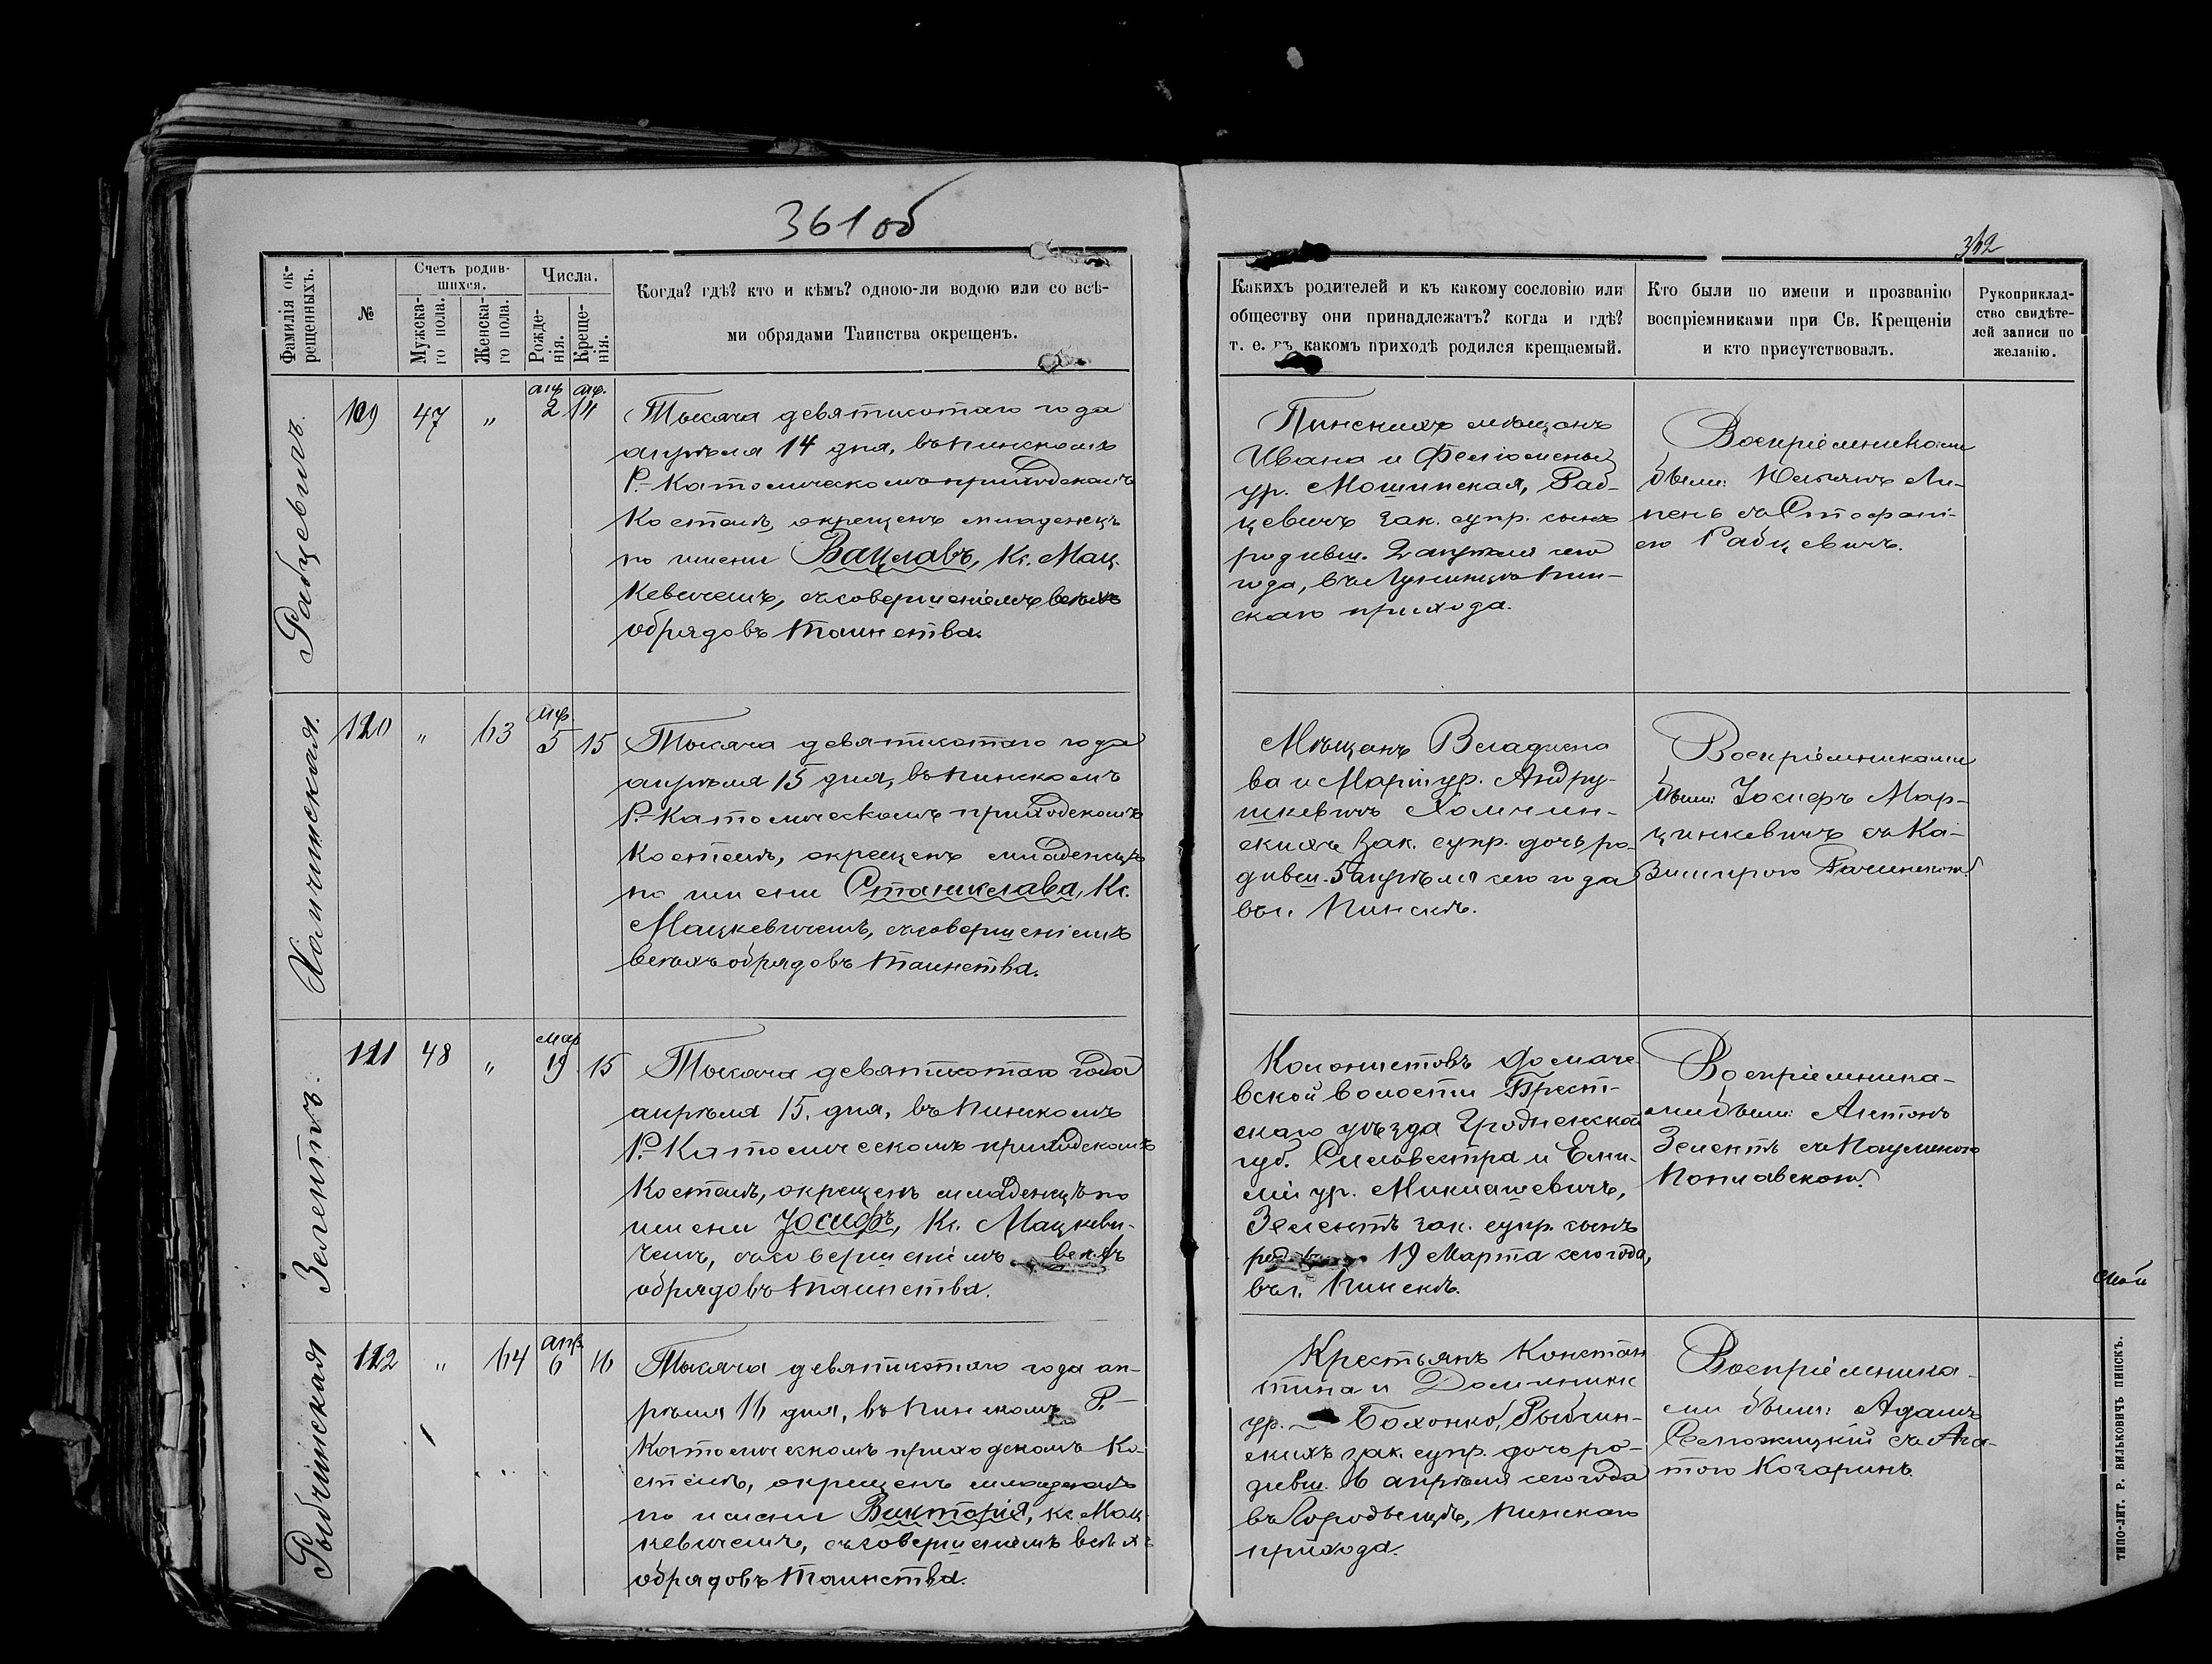 361 об
362
Фамилія ок-
рещенныхъ.
№
Счетъ родив-
шихся.
Мужска-
го пола.
Женска-
го пола.
Числа.
Рожде-
нія.
Креще-
нія.
Когда? гдѣ? кто и кѣмъ? одною-ли водою или со всѣ-
ми обрядами Таинства окрещенъ.
Какихъ родителей и къ какому сословію или
обществу они принадлежатъ? когда и гдѣ?
т. е. въ какомъ приходѣ родился крещаемый.
Кто были по имени и прозванію
воспріемниками при Св. Крещеніи
и кто присутствовалъ.
Рукоприклад-
ство свидѣте-
лей записи по
желанію.
Рабцевичъ.
119
47
"
апр
2
апр.
14
Тысяча девятисотаго года
апрѣля 14 дня, въ Пинскомъ
Р.-Католическомъ приходскомъ
Костелѣ, окрещенъ младенецъ
по имени Вацлавъ, Кс. Мац-
кевичемъ, съ совершеніемъ всѣхъ
обрядовъ таинства.
Пинскихъ мѣщанъ
Ивана и Филомены
ур. Мошинская, Раб-
цевичъ зак. супр. сынъ
родивш. 2 апрѣля сего
года, въ Лунинцѣ Пин-
скаго прихода.
Воспріемниками
были: Юльянъ Ли-
пень съ Стефані-
ею Рабцевичъ.
Холчинская.
120
"
63
апр
5
15
Тысяча девятисотаго года
апрѣля 15 дня, въ Пинскомъ
Р.-Католическомъ приходскомъ
Костелѣ, окрещенъ младенецъ
по имени Станислава, Кс.
Мацкевичемъ, съ совершеніемъ
всѣхъ обрядовъ таинства.
Мѣщанъ Владисла
ва и Маріи ур. Андру-
шкевичъ Холчин-
скихъ зак. супр. дочь ро-
дивш. 5 апрѣля сего года
въ г. Пинскѣ.
Воспріемниками
были: Іосифъ Мар-
цинкевичъ съ Ка-
зимирою
Зелентъ.
121
48
"
мар
19
15
Тысяча девятисотаго года
апрѣля 15 дня, въ Пинскомъ
Р.-Католическомъ приходскомъ
Костелѣ, окрещенъ младенецъ по
имени Іосифъ, Кс. Мацкеви-
чемъ, съ совершеніемъ всѣхъ
обрядовъ таинства.
Колонистовъ Домаче-
вской волости Брест-
скаго уѣзда Гродненской
губ. Сильвестра и Еми-
ліи ур. Миклашевичъ,
Зелентъ зак. супр. сынъ
19 Марта сего года,
въ г. Пинскѣ.
Воспріемника-
ми были: Антонъ
Зелентъ съ Паулиною
Поплавскою.
Рыбчинская
122
"
64
апр.
6
16
Тысяча девятисотаго года ап-
рѣля 16 дня, въ Пинскомъ Р.-
Католическомъ приходскомъ Ко-
стелѣ, окрещенъ младенецъ
по имени Викторія, Кс. Мац-
кевичемъ, съ совершеніемъ всѣхъ
обрядовъ таинства.
Крестьянъ Констан
тина и Доминики
ур. Бохонко, Рыбчин-
скихъ зак. супр. дочь ро-
дивш. 6 апрѣля сего года
въ Городыщѣ, Пинскаго
прихода.
Воспріемника-
ми были: Адамъ
съ Ага-
тою Козаринъ.
ТИПО-ЛИТ. Р. ВИЛЬКОВИЧЪ ПИНСКЪ.